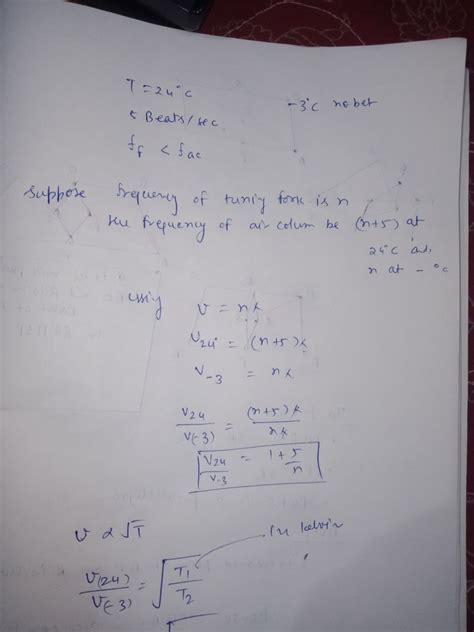 T = 24°C
-3°C no bet
5 Beats/sec
f_f < f_ac
Suppose frequency of tuning fork is n
the frequency of air colum be (n+5) at
24°C and
n at - °C
using
v = nλ
V_24° = (n+5)λ
V_-3 = nλ
V_24/V_(-3) = (n+5)λ/nλ
V_24/V_-3 = 1 + 5/n
v ∝ √T
In kelvin
V_(24)/V_(-3) = √(T_1/T_2)